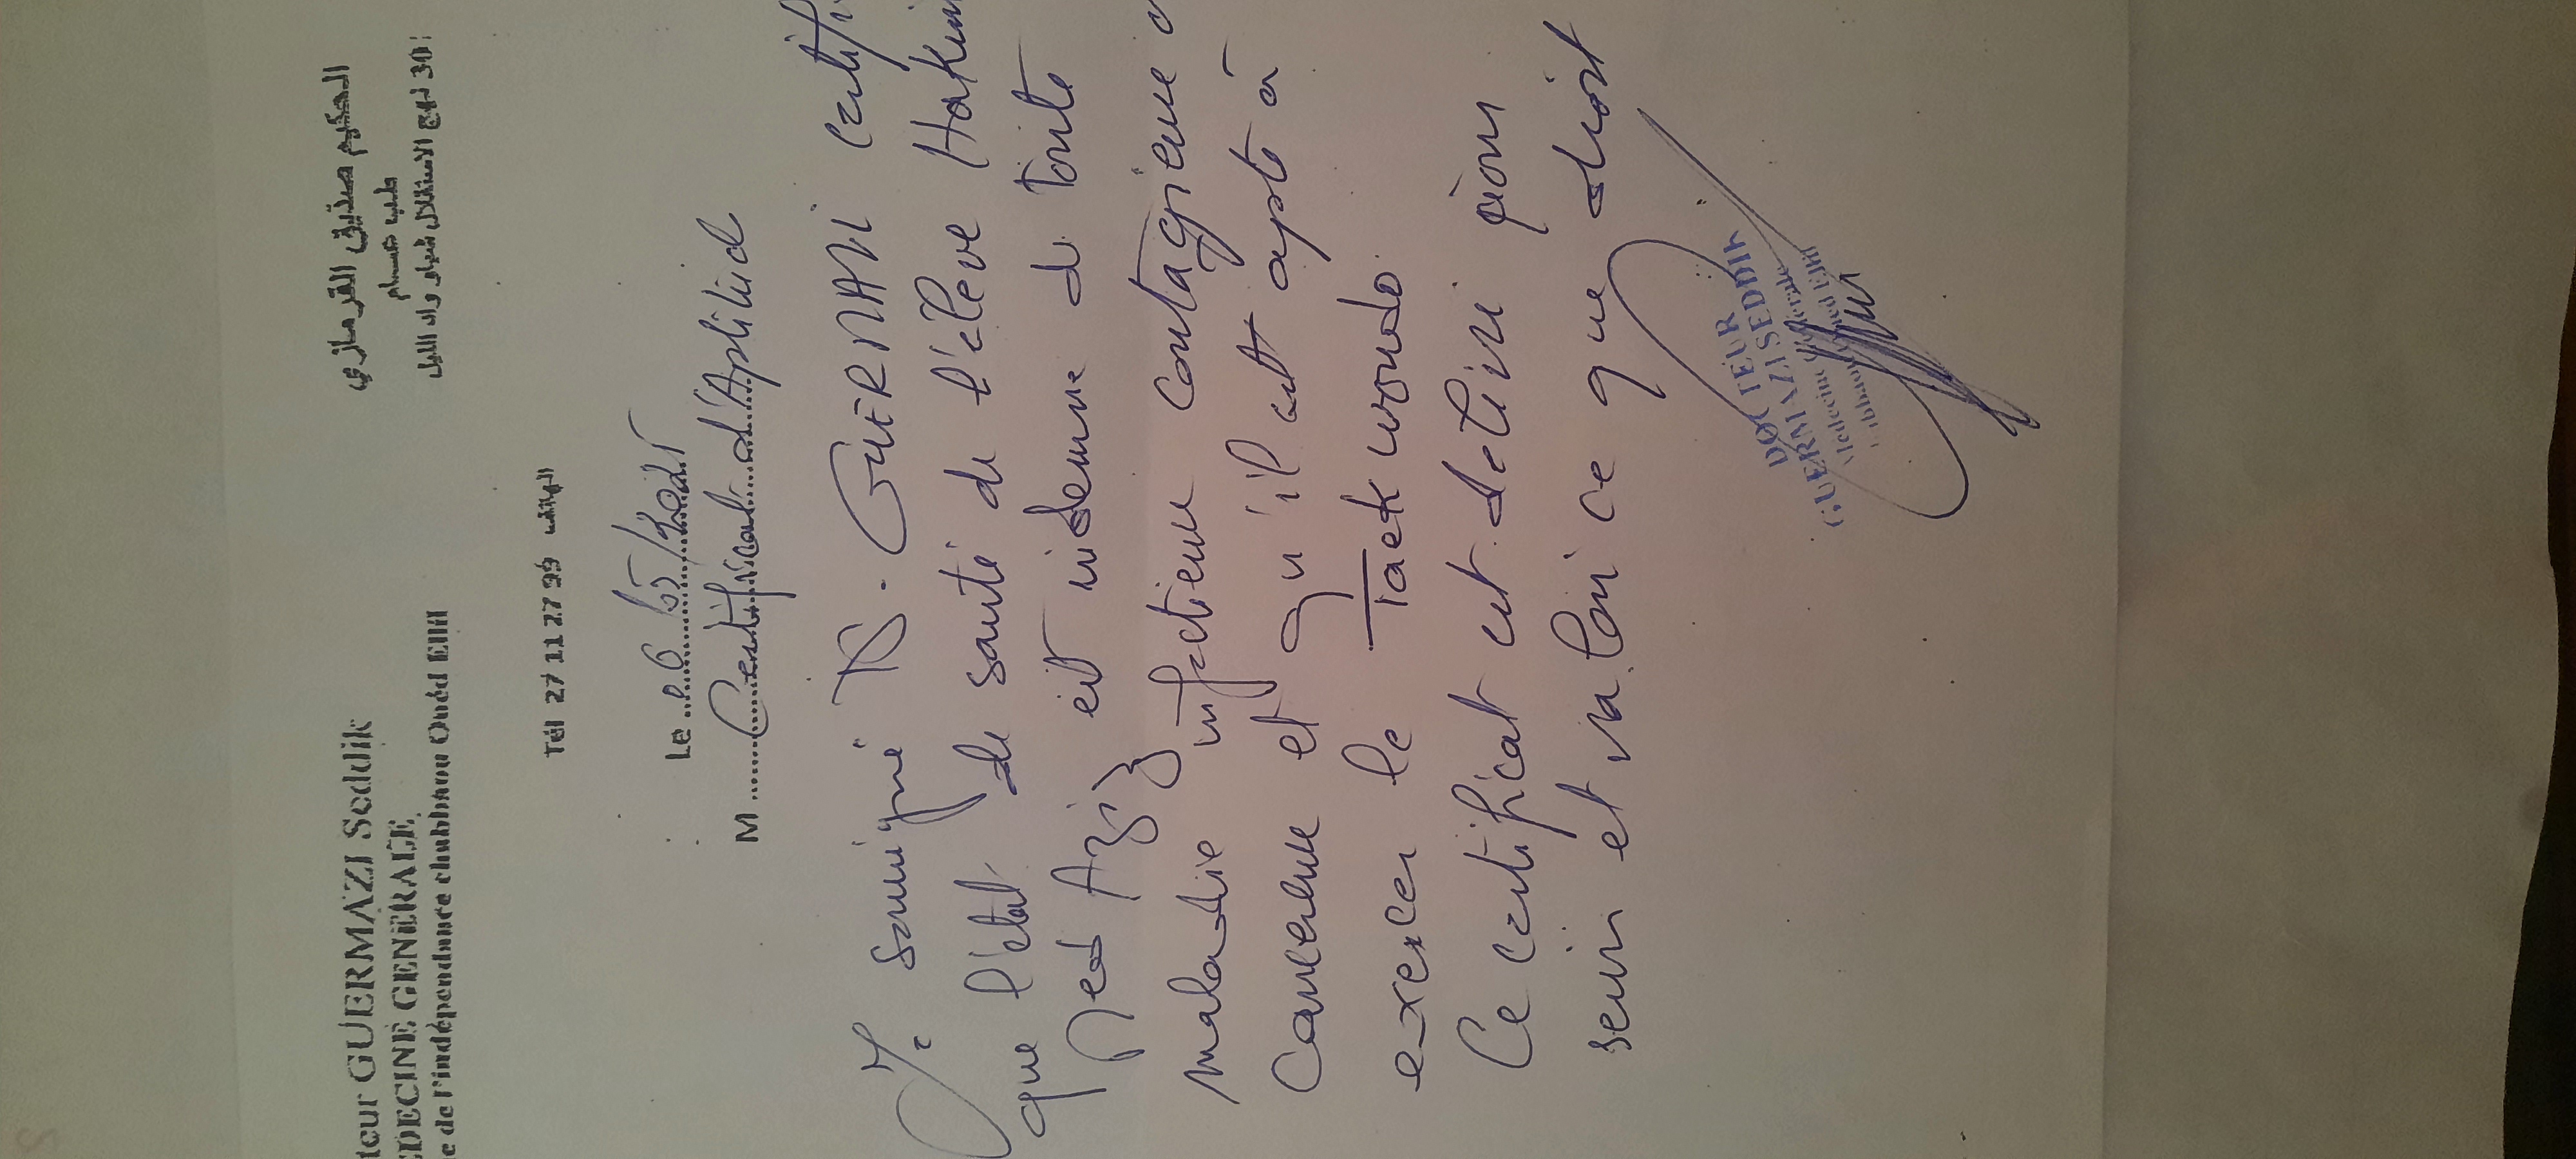 teur GUERMAZI Seddik
EDECINE GENERALE
e de l'indépendance chabbaou Ouéd Ellil
الحكيم صديق القرمازي
طب عام
30 نهج الاستقلال شباو واد الليل
Tél 27 11 27 99 الهاتف
Le 06/05/2025
M Certificat d'Aptitud
Je soussigné Dr. GUERMAZI certifi
que l'état de santé de l'élève Hakim
Med Aziz est indemne de toute
maladie infectieuse contagieuse
Cancereuse et qu'il est apte à
exercer le Taekwondo
Ce certificat est destiné pour
servir et valoir ce que droit
DOCTEUR
GUERMAZI SEDDIK
Medecine Generale